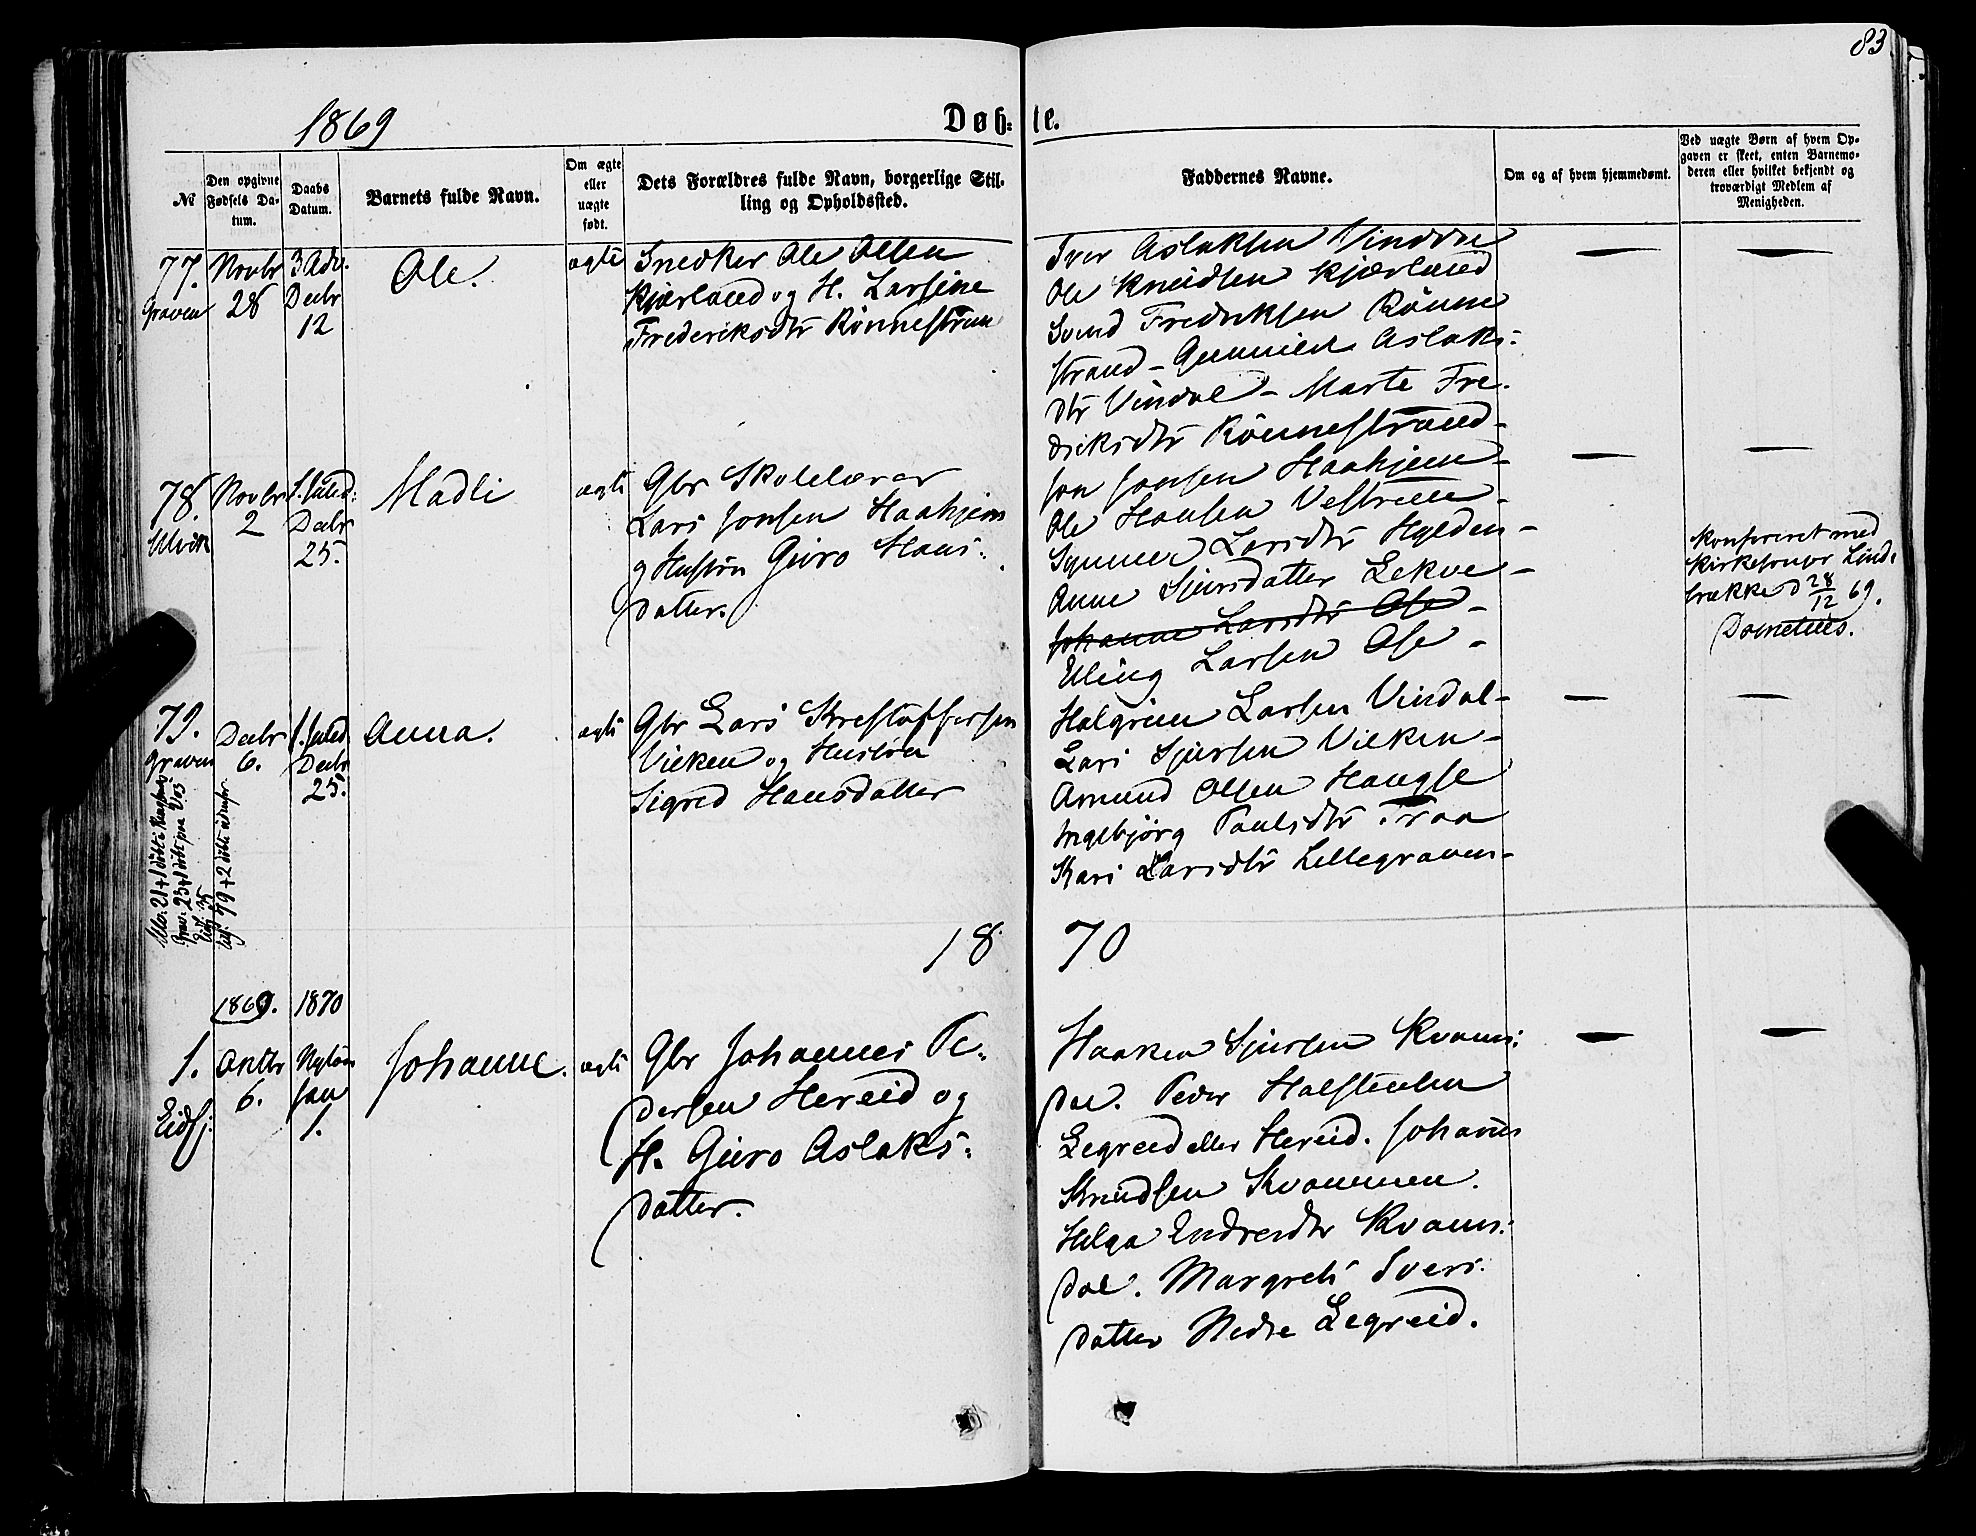 83
1869
Døb-te.
№
Den opgivne Fødsels Datum.
Daabs Datum.
Barnets fulde Navn.
Om ægte eller uægte født.
Dets Forældres fulde Navn, borgerlige Stilling og Opholdssted.
Faddernes Navne.
Om og af hvem hjemmedøbt.
Ved uægte Børn af hvem Opgaven er skeet, enten Barnemoderen eller hvilket bekjendt og troværdigt Medlem af Menigheden.
77.
Graven
Novbr
28
3 Adv.
Decbr
12
Ole.
ægte
Snedker Ole Olsen
Kjærland og H. Larsine
Frederiksdtr Rönnestran
Iver Aslaksen Vindal
Ole Knudsen Kjærland
Svend Fredriksen Rönne
strand - Gunnild Aslaks-
dtr Vindal - Marte Fre-
driksdtr Rönnestrand -
78.
Ulvik
Novbr
2
1. Juled:
Decbr
25.
Madli
ægte
Gbr Skolelærer
Lars Jonsen Haahjem
og Hustru Guro Hans-
datter.
Jon Jonsen Haahjem -
Ole Hansen Vestrem -
Synneve Larsdtr Hylden -
Anne Sjursdatter Lekve -
Johanne Larsdtr Ose -
Elling Larsen Ose -
Konfereret med
Kirkesanger Lind-
brække d 28/12 69.
79.
Graven
Decbr
6.
1. Juled
Decbr
25.
Anna.
ægte
Gbr Lars Kristoffersen
Vicken og Hustru
Sigrid Hansdatter
Halgrim Larsen Vindal -
Lars Sjursen Vicken -
Amund Olsen Haugse
Ingebjörg Paulsdtr Traa
Kari Larsdtr Lillegraven -
1870
1869.
1870
1.
Eidfj:
Oktbr
6.
Nytaar
Jan
1.
Johanne.
ægte
Gbr Johannes Pe-
dersen Hereid og
H. Guro Aslaks-
datter.
Haaken Sjursen Kvams-
dal. Peder Halsteinsen
Legreid eller Hereid. Johannes
Knudsen Kvammen.
Helga Endresdtr Kvams-
dal. Margrete Svers-
datter Nedre Legreid.